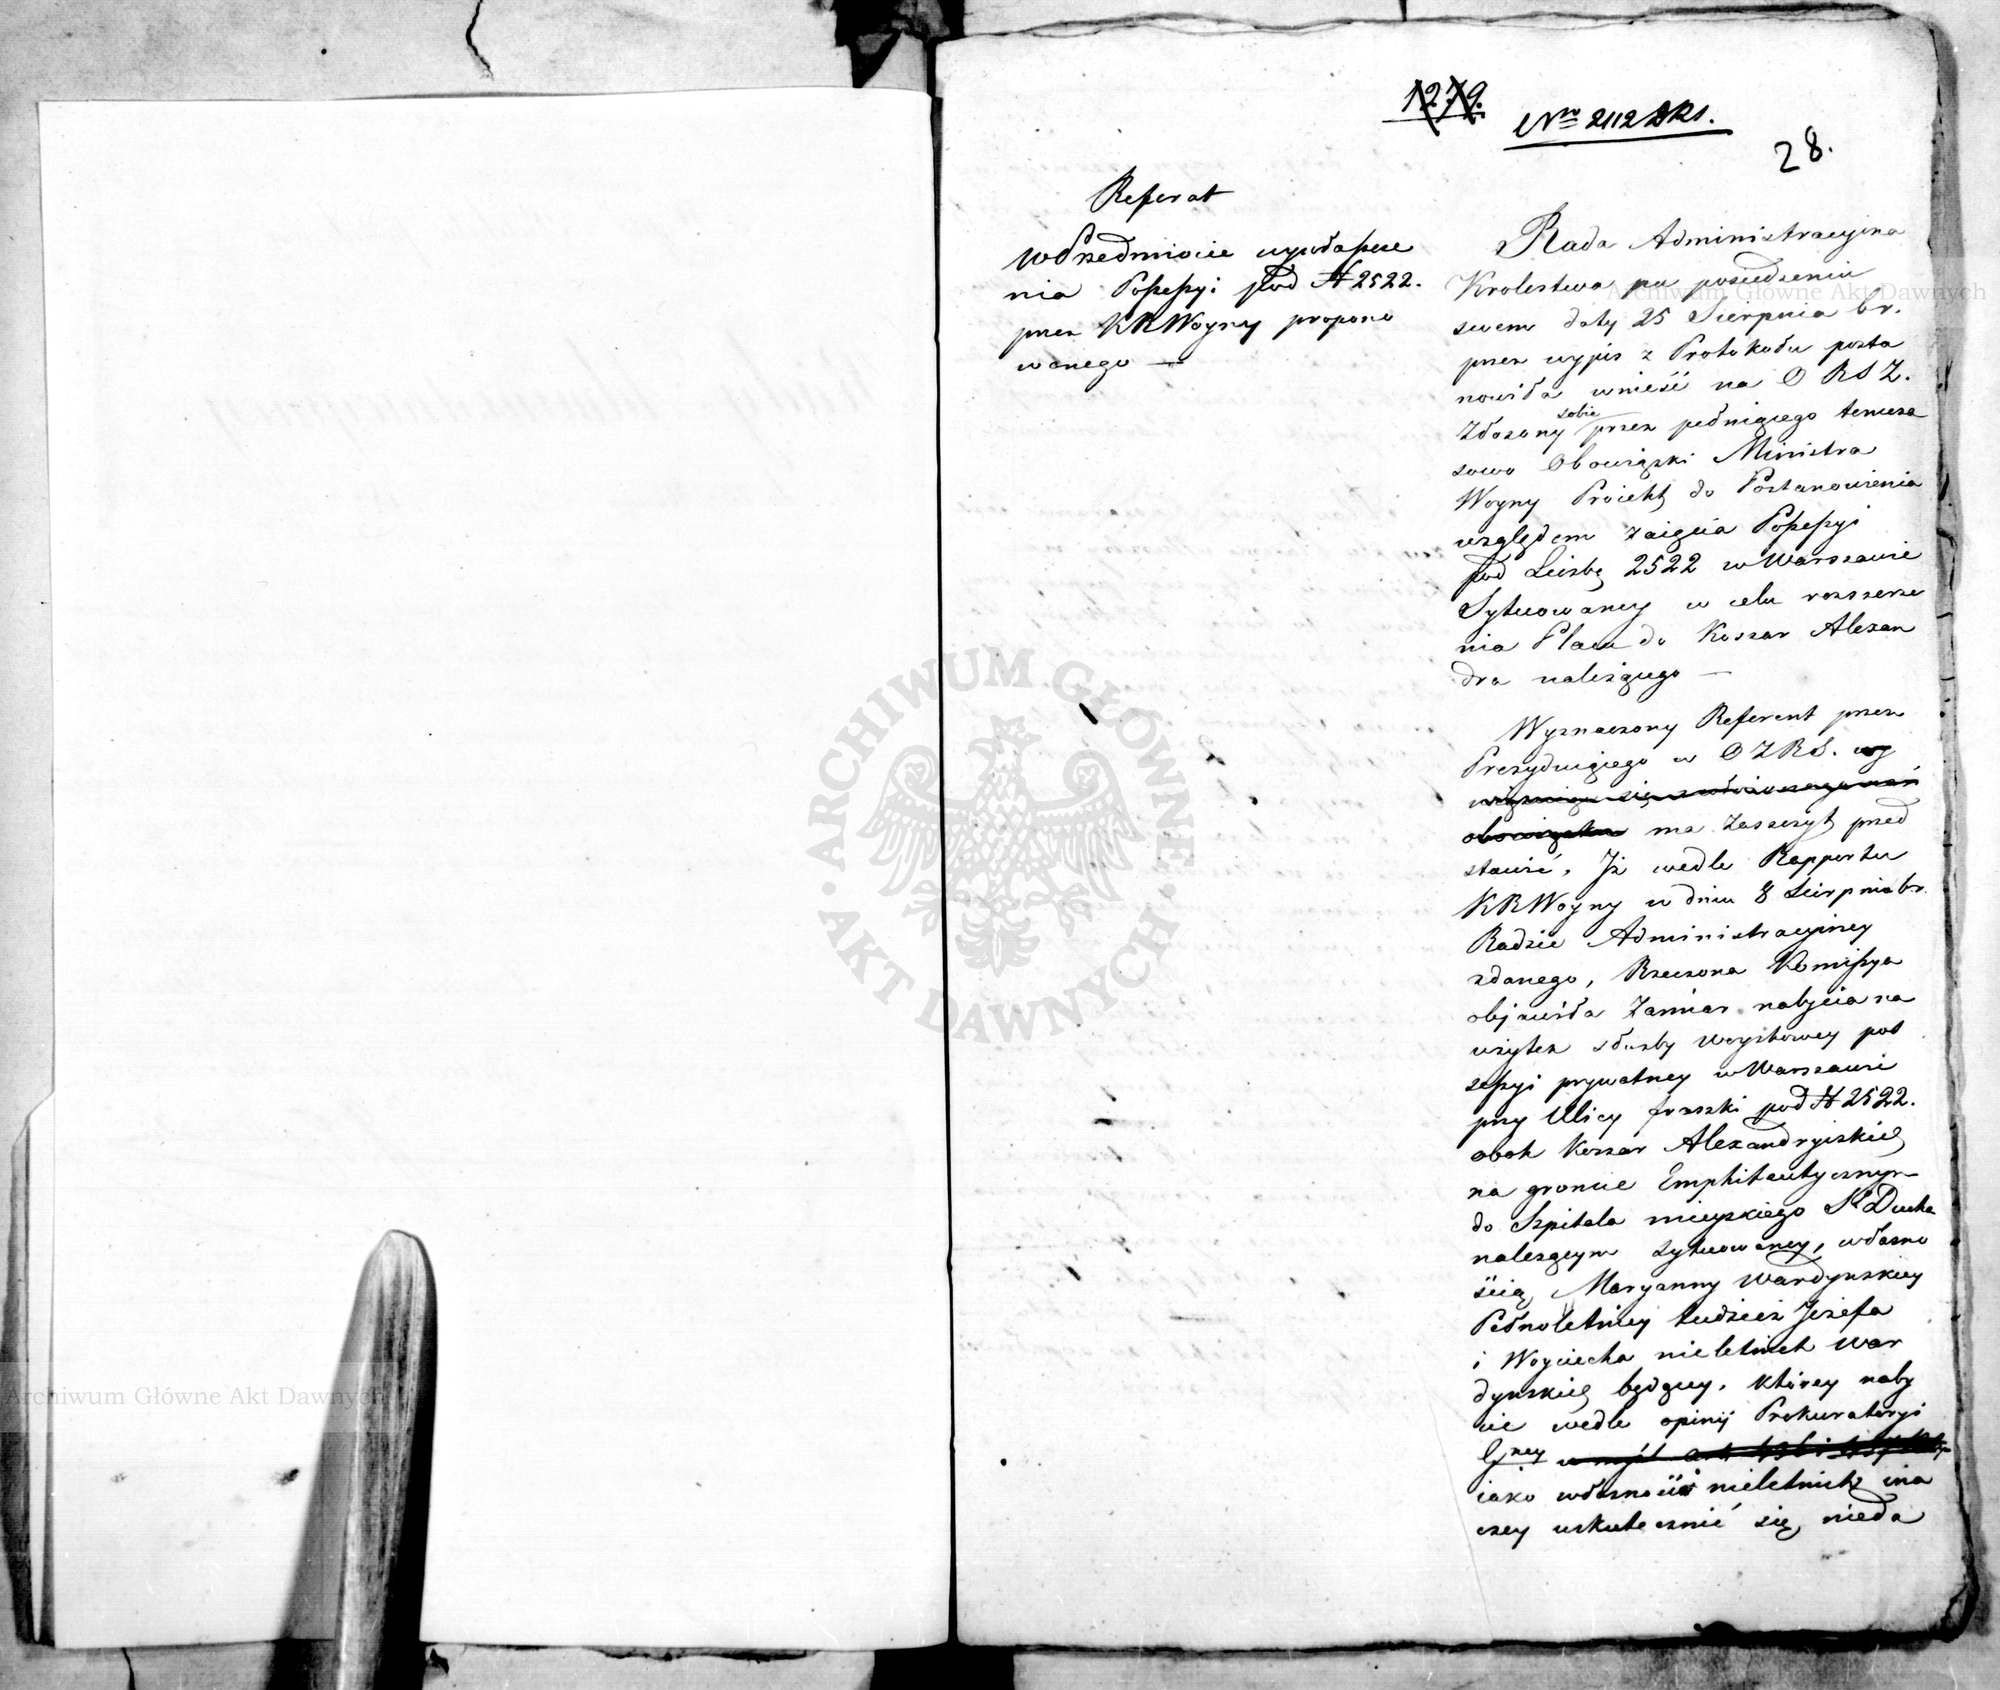 1279.
Nro 2112 821.
28.
Referat
w Przedmiocie wywłaszcze
nia Possessyi pod N 2522.
przez KRWoyny propono
wanego —
Rada Administracyina
Krolestwa po posiedzeniu
swem daty 25 Sierpnia br.
przez wypis z Protokołu posta
nowiła wnieść na O RS Z.
złożony sobie przez pełniącego tymcza
sowo Obowiązki Ministra
Woyny Proiekt do Postanowienia
względem zaięcia Possessyi
pod Liczbą 2522 w Warszawie
Sytuowaney w celu rozszerze
nia Placu do Koszar Alexan
dra należącego —
Wyznaczony Referent przez
Prezyduiącego w O Z RS. wy
obowiązku ma zaszczyt przed
stawić, Iż wedle Rapportu
KRWoyny w dniu 8 Sierpnia br.
Radzie Administracyiney
zdanego, Rzeczona Kommissya
obiawiła zamiar nabycia na
użytek służby woyskowey pos
sessyi prywatney w Warszawie
przy Ulicy fraszki pod N 2522.
obok Koszar Alexandryiskich
na gruncie Emphiteutycznym
do Szpitala mieyskiego St Ducha
należącym sytuowaney, własno
ścią Maryanny Wardynskiey
Pełnoletniey tudzież Józefa
i Woyciecha nieletnich War
dynskich będącey, którey naby
cie wedle opinii Prokuratoryi
Gney w myśl art
iako własności nieletnich ina
czey uskutecznić się nieda
Archiwum Główne Akt Dawnych
ARCHIWUM GŁÓWNE AKT DAWNYCH
Archiwum Główne Akt Dawnych